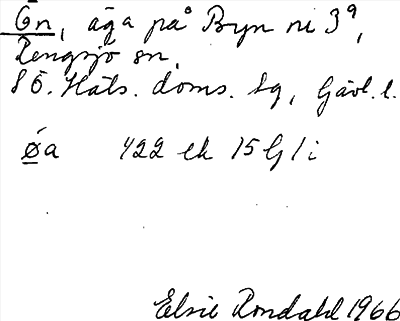 Ön, äga på Byn nr 3⁹,
Rengsjö sn,
Sö. Häls. doms. sg, Gävl. l.
øa 422 ek 15 G 1 i
Elsie Rondahl 1966